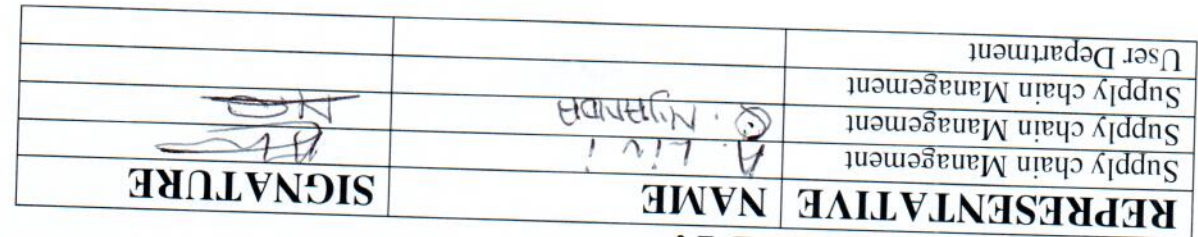 REPRESENTATIVE NAME SIGNATURE
Supply chain Management A. Livi
Supply chain Management Q. NJANDA
Supply chain Management
User Department